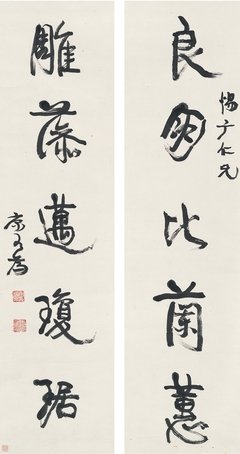 良朋比蘭蕙
惕广仁兄
雕藻邁瓊琚
康有為